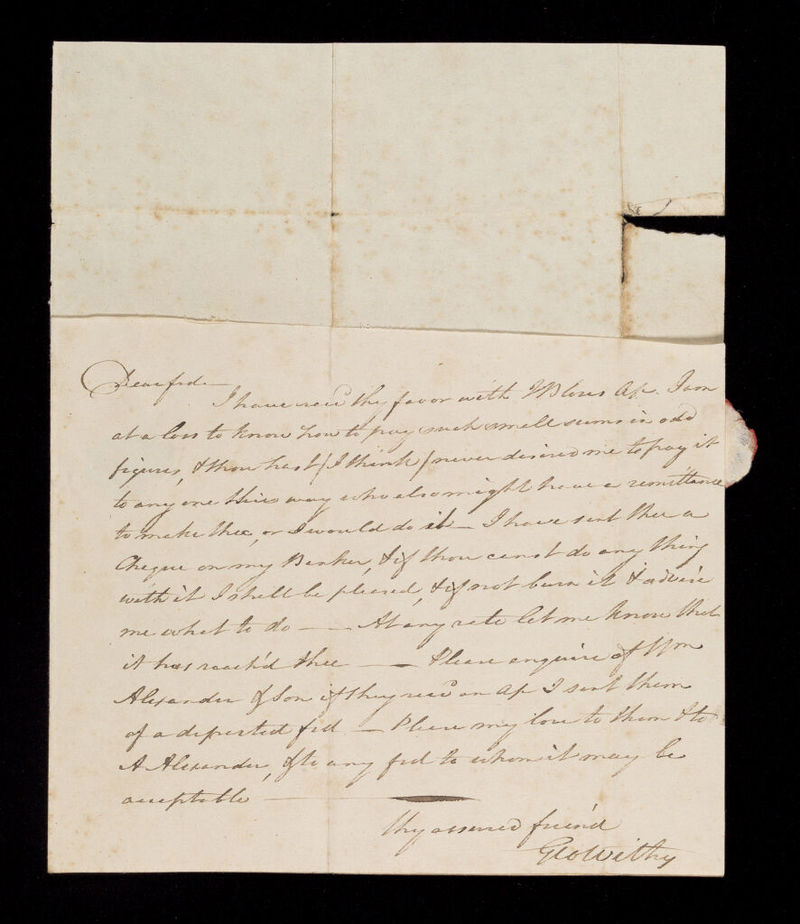 Dear frd
I have recd thy favor with Blours Ap. I am
at a loss to know how to pay such small sums in odd
figures, & thou hast (I think) never desired me to pay it
to any one this way who also might have a remittance
to make thee, or I would do it — I have sent thee a
Cheque on my Banker, & if thou canst do any thing
with it I shall be pleased, & if not burn it & advise
me what to do — — At any rate let me know that
it has reach'd thee — — Please enquire of Wm
Alexander & Son if they recd an Ap I sent them
of a departed frd — Please my love to them & to
A Alexander, & to any frd to whom it may be
acceptable —
thy assured friend
Geo Withy